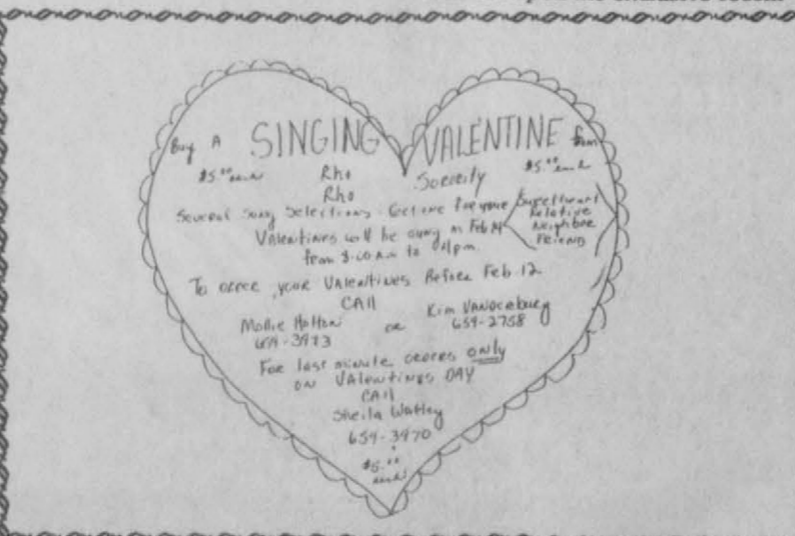 Buy A SINGING VALENTINE from
$5.00 each Rho Sorority $5.00 each
Rho
Several Song Selections. Get one for your Sweetheart
Relative
Neighbor
Friend
Valentines will be sung on Feb 14
from 8:00 am to pm
To order your Valentines Before Feb. 12
CAll
Mollie Holton or Kim Vanderburg
659-3973 659-2758
For last minute orders only
on Valentines DAY
CAll
Sheila Watley
659-3970
$5.00
each